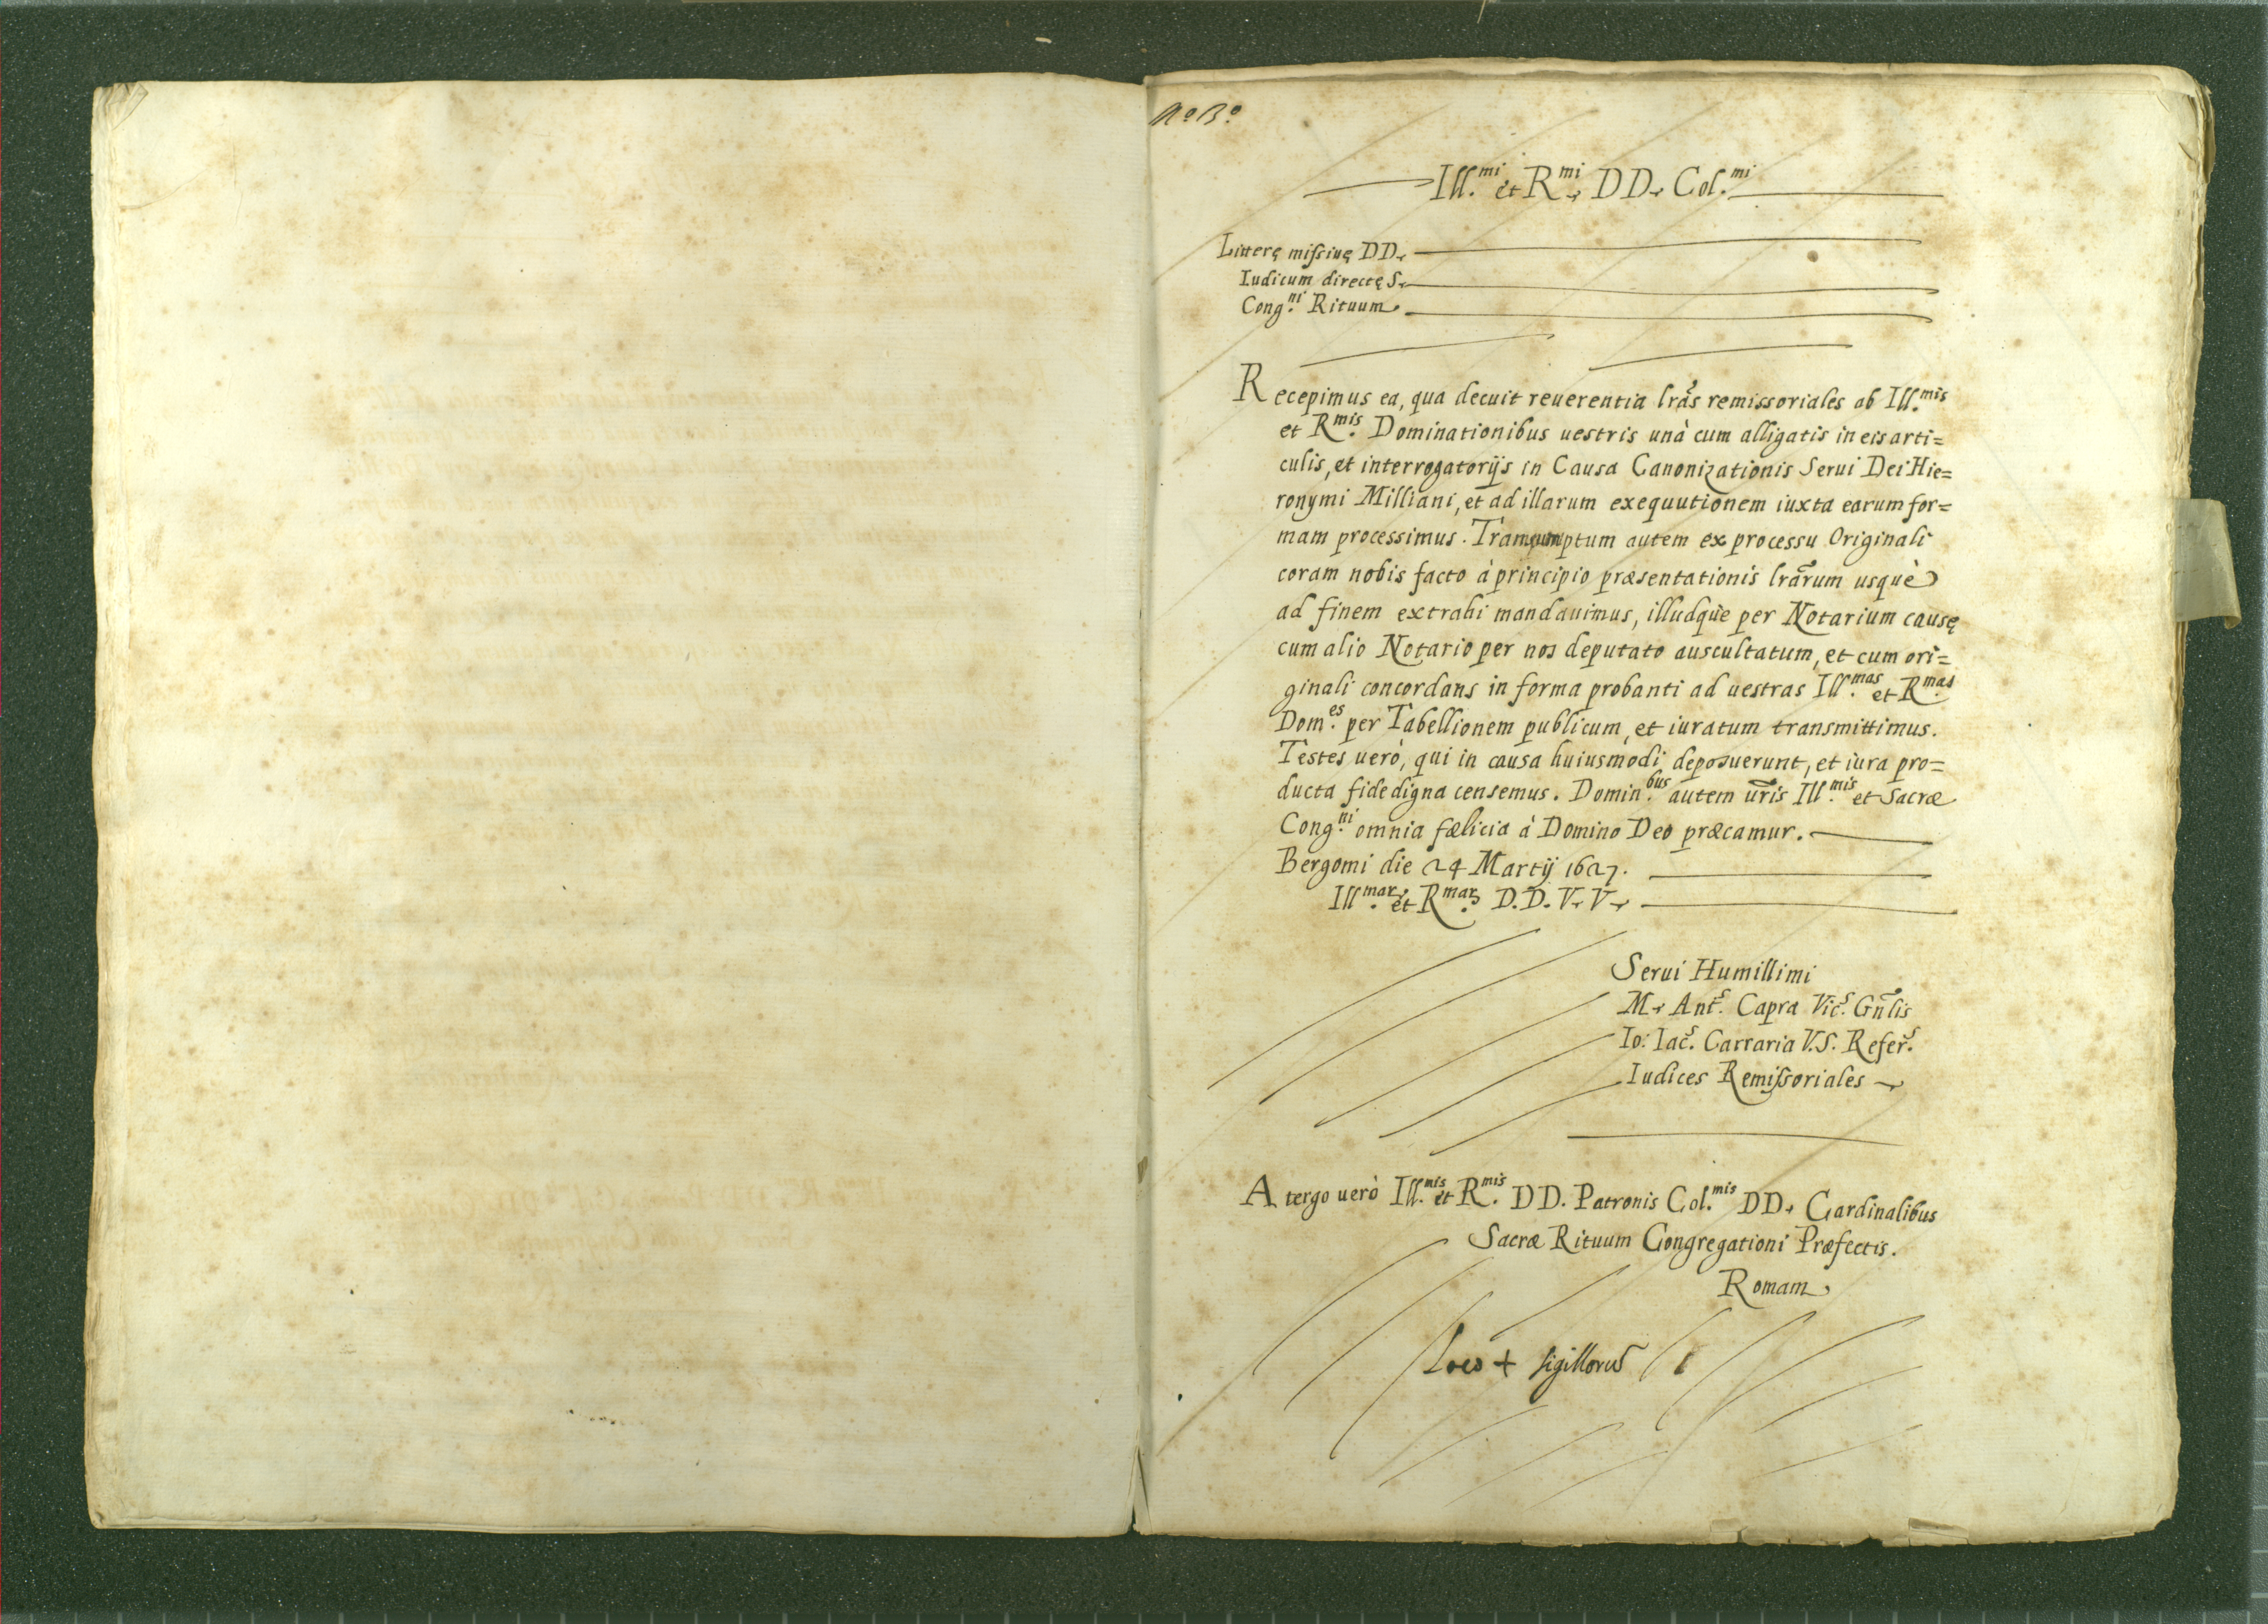 Nº Bº
Ill.mi et R.mi DD. Col.mi
Litterę missiuę DD.
Iudicum directę S.
Cong.ni Rituum.
Recepimus ea, qua decuit reuerentia lrãs remissoriales ab Ill.mis
et R.mis Dominationibus uestris unà cum alligatis in eis arti=
culis, et interrogatorijs in Causa Canonizationis Serui Dei Hie=
ronymi Milliani, et ad illarum exequutionem iuxta earum for=
mam processimus. Transumptum autem ex processu Originali
coram nobis facto à principio præsentationis lrãrum usquè
ad finem extrahi mandauimus, illudquè per Notarium causę
cum alio Notario per nos deputato auscultatum, et cum ori=
ginali concordans in forma probanti ad uestras Ill.mas et R.mas
Dom.es per Tabellionem publicum, et iuratum transmittimus.
Testes uerò, qui in causa huiusmodi deposuerunt, et iura pro=
ducta fide digna censemus. Domin.bus autem ur̃is Ill.mis et Sacræ
Cong.ni omnia fælicia à Domino Deo præcamur.
Bergomi die 24 Martij 1627.
Ill.mar. et R.mar. D.D. V. V.
Serui Humillimi
M. Ant.s Capra Vic.s Gñlis
Io: Iac.s Carraria V.S. Refer.s
Iudices Remissoriales
A tergo uerò Ill.mis et R.mis DD. Patronis Col.mis DD. Cardinalibus
Sacræ Rituum Congregationi Præfectis.
Romam
Loco + sigillorũ